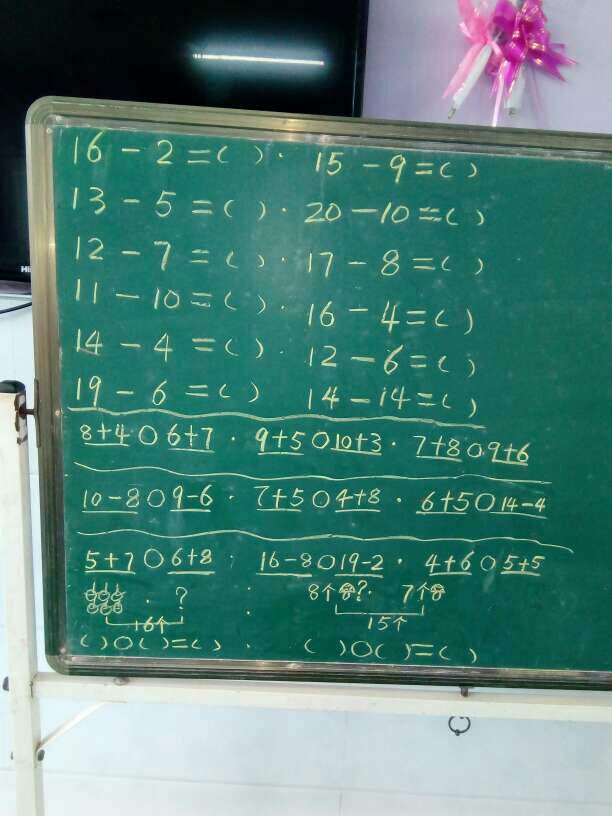 16 - 2 = ( ) · 15 - 9 = ( )
13 - 5 = ( ) · 20 - 10 = ( )
12 - 7 = ( ) · 17 - 8 = ( )
11 - 10 = ( ) · 16 - 4 = ( )
14 - 4 = ( ) · 12 - 6 = ( )
19 - 6 = ( ) 14 - 14 = ( )
8+4 ○ 6+7 · 9+5 ○ 10+3 · 7+8 ○ 9+6
10-8 ○ 9-6 · 7+5 ○ 4+8 · 6+5 ○ 14-4
5+7 ○ 6+8 · 16-8 ○ 19-2 · 4+6 ○ 5+5
· ? 8个 ? · 7个
16个 15个
( ) ○ ( ) = ( ) · ( ) ○ ( ) = ( )